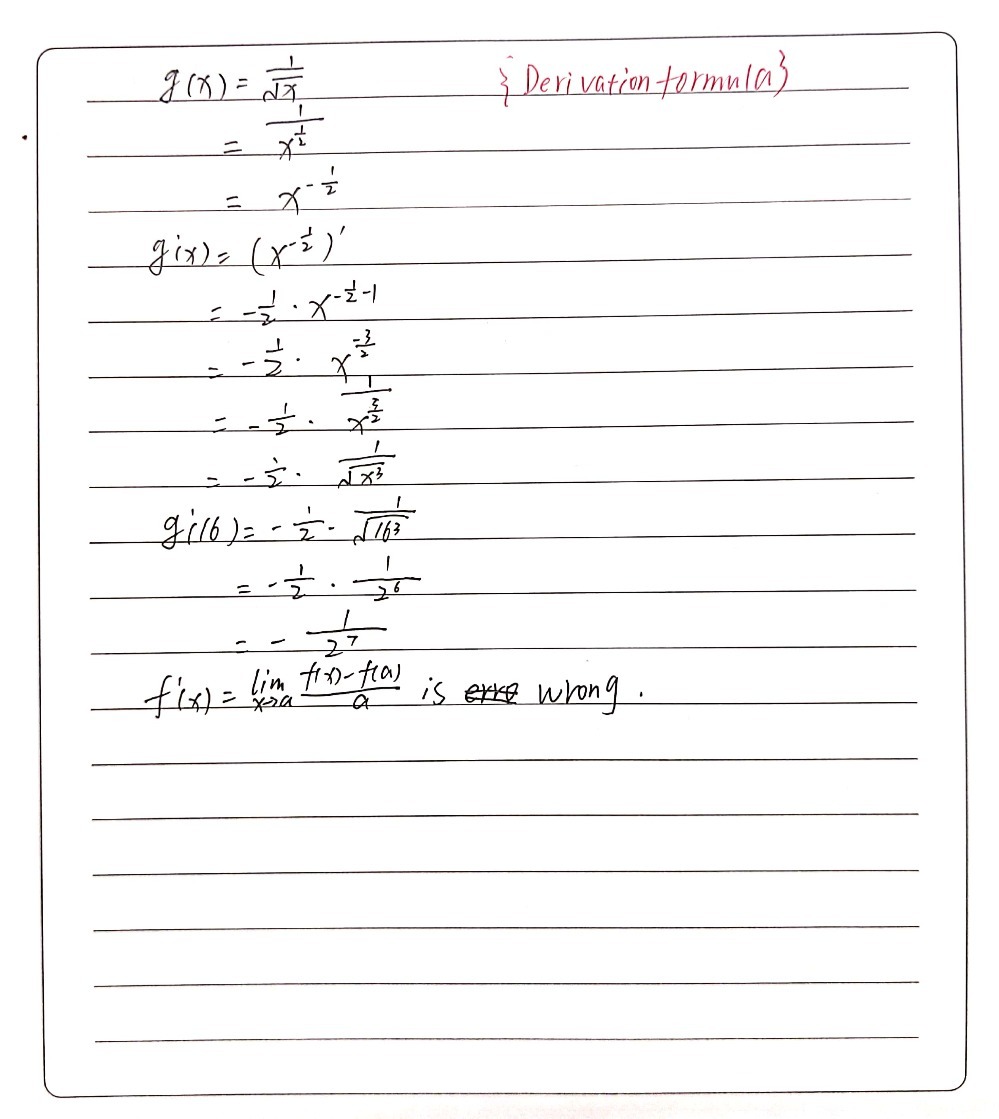 g(x) = 1/√x {Derivation formula}
= 1/x^(1/2)
= x^(-1/2)
g'(x) = (x^(-1/2))'
= -1/2 · x^(-1/2-1)
= -1/2 · x^(-3/2)
= -1/2 · 1/x^(3/2)
= -1/2 · 1/√x³
g'(16) = -1/2 · 1/√16³
= -1/2 · 1/2⁶
= - 1/2⁷
f'(x) = lim x→a (f(x)-f(a))/a is wrong.